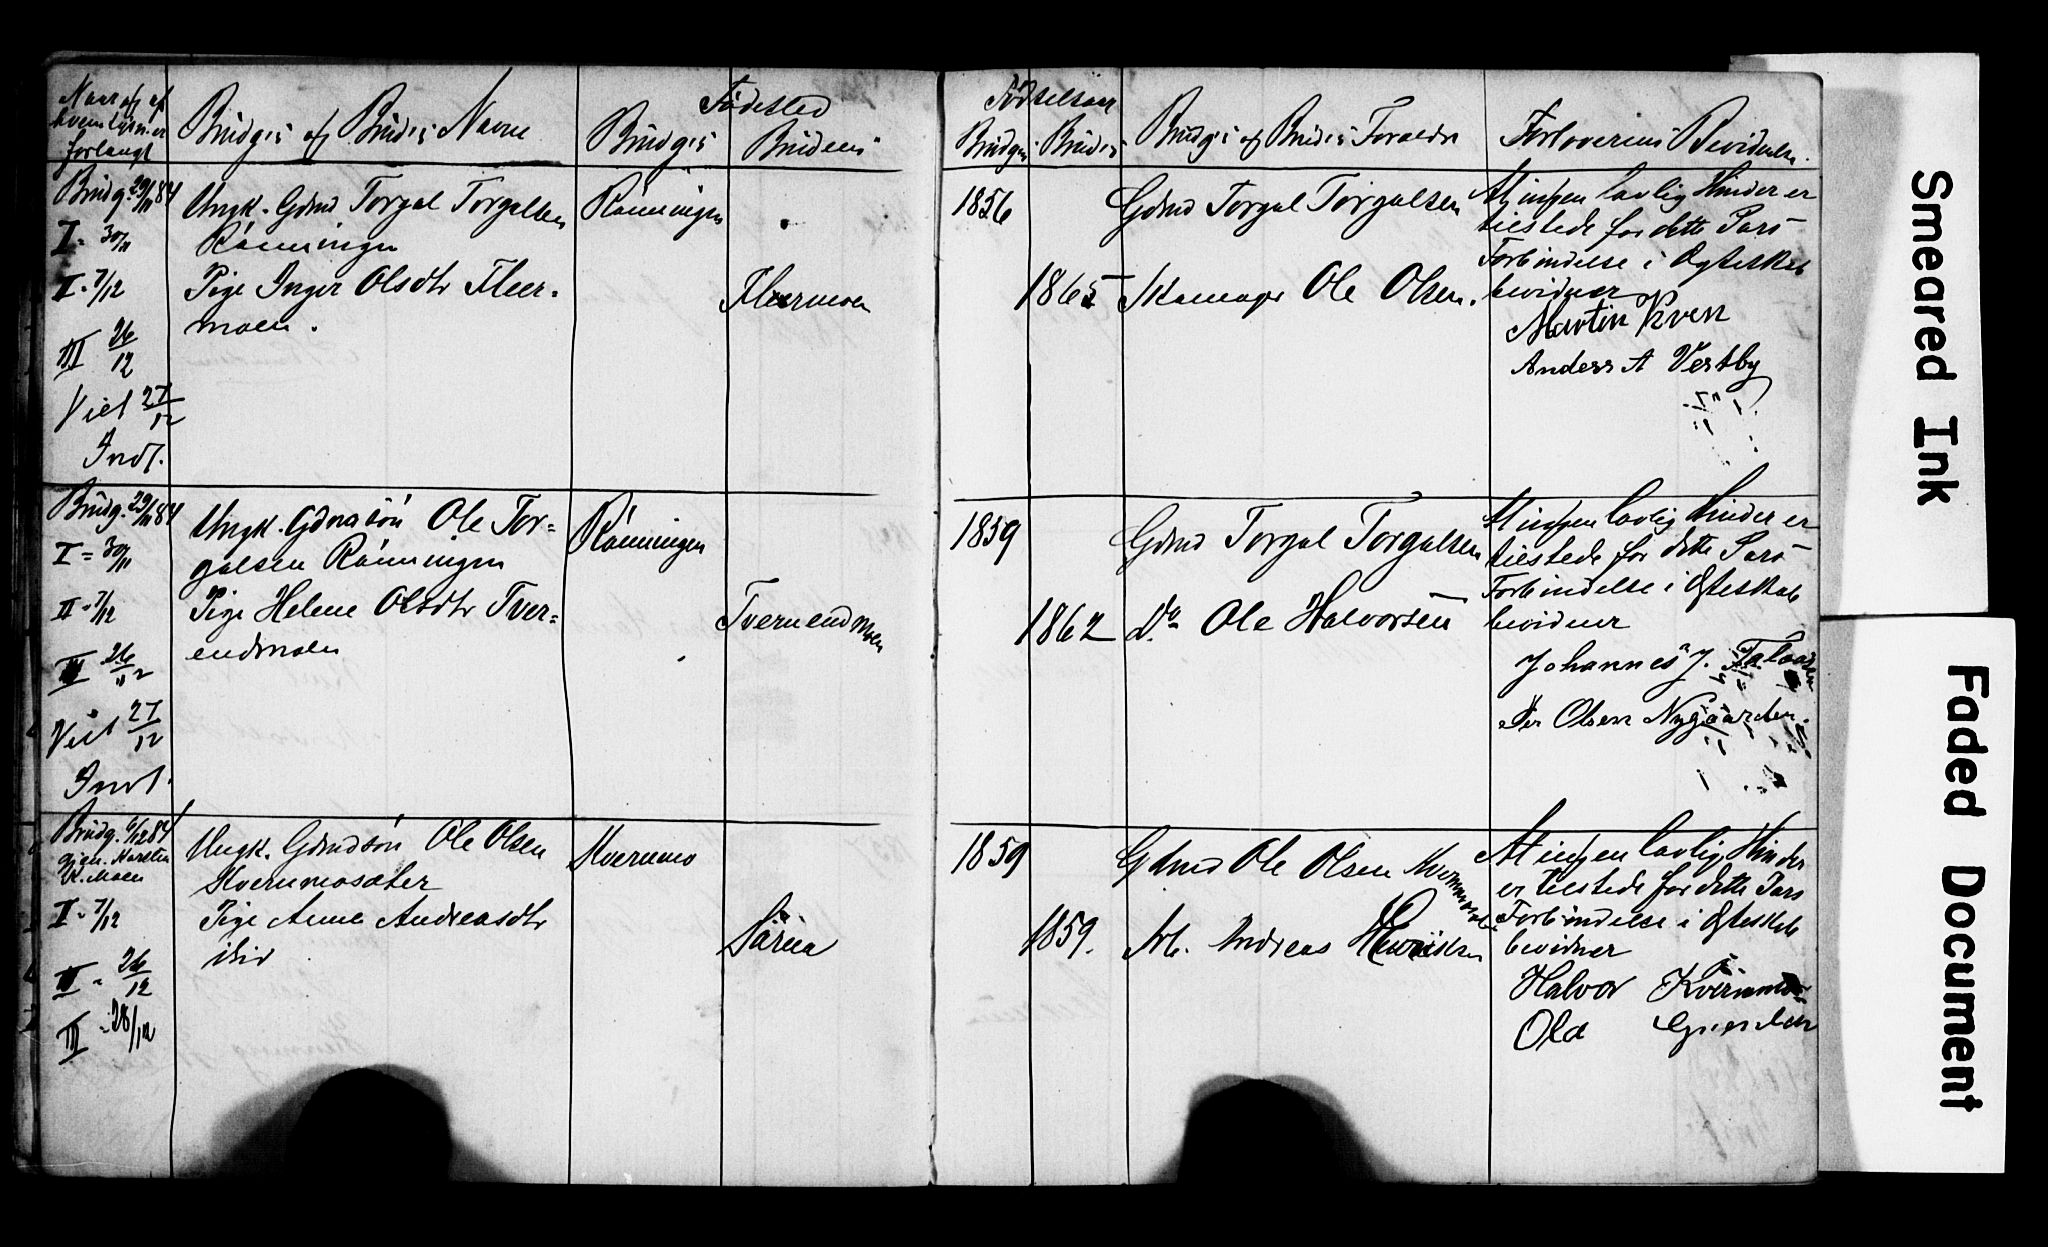 Naar og af
hvem Lysn. er
forlangt
Brudg.s og Brud.s Navne
Fødested
Brudg.s
Brudens
Fødselsaar
Brudgs.
Brudes
Brudg.s og Brudes Forældr
Forloverens Bevidnelse.
Brudg. 29/11 84
I = 30/11
II = 7/12
III 26/12
Viet 27/12
Indf.
Ungk. Gdmd Torgal Torgalsen
Rønningen
Pige Inger Olsdtr Fleer-
moen.
Rønningen
Fleermoen
1856
1865
Gdmd Torgal Torgalsen
Skomager Ole Olsen.
At ingen lovlig Hinder er
tilstede for dette Pars
Forbindelse i Ægteskab
bevidner
Martin Kven
Anders A Vestby
Brudg. 29/11 84
I = 30/11
II = 7/12
III 26/12
Viet 27/12
Indf.
Ungk. Gdmdsøn Ole Tor=
galsen Rønningen
Pige Helene Olsdtr Tver=
endmoen
Rønningen
Tverrendmoen
1859
1862
Gdmd Torgal Torgalsen
Do Ole Halvorsen
At ingen lovlig Hinder er
tilstede for dette Pars
Forbindelse i Ægteskab
bevidner
Johannes J.
Per Olsen Nygaarden.
Brudg. 6/12 84
gjen. Karsten
K. Moen
I = 7/12
II = 26/12
III = 28/12
Ungk. Gdmdsøn Ole Olsen
Kvernmosæter
Pige Anne Andreasdtr
ibid
Kvernmo
Särna
1859
1859.
Gdmd Ole Olsen
Arb. Andreas Henriksen
At ingen lovlig Hinder
er tilstede for dette Pars
Forbindelse i Ægteskab
bevidner
Halvor Kvernmo
Ola
Smeared Ink
Faded Document